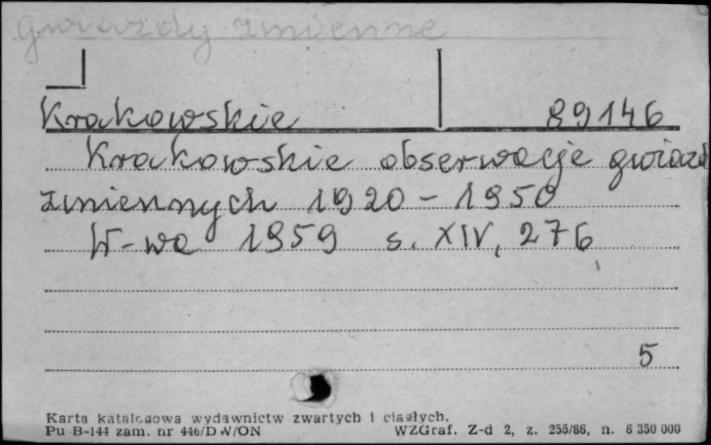 gwiazdy zmienne
Krakowskie 89146
Krakowskie obserwacje gwiazd
zmiennych 1920-1950
W-wa 1959 s. XIV, 276
5
Karta katalogowa wydawnictw zwartych i ciągłych.
Pu B-144 zam. nr 446/DW/ON WZGraf. Z-d 2, z. 255/86, n. 6 350 000